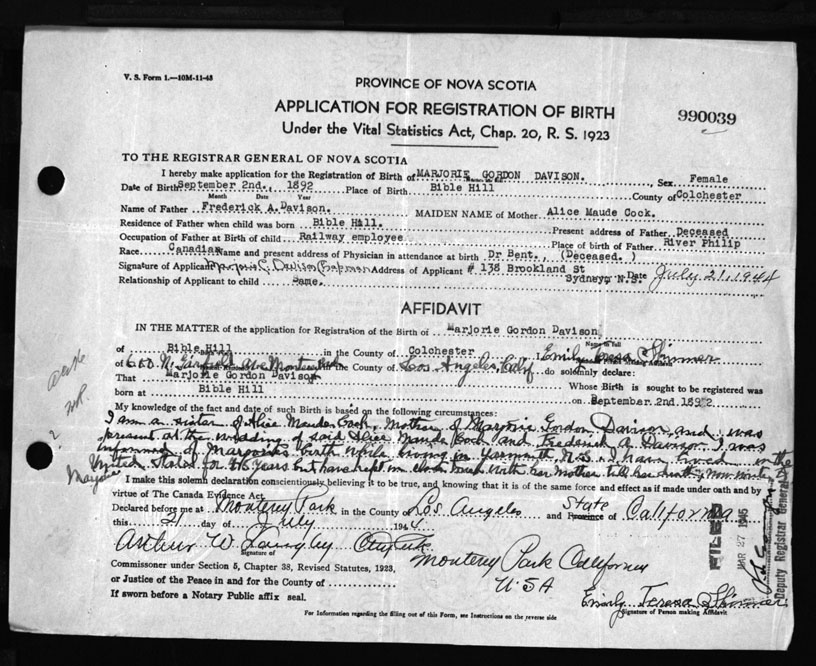 V. S. Form 1.—10M-11-43
PROVINCE OF NOVA SCOTIA
APPLICATION FOR REGISTRATION OF BIRTH
990039
Under the Vital Statistics Act, Chap. 20, R. S. 1923
TO THE REGISTRAR GENERAL OF NOVA SCOTIA
I hereby make application for the Registration of Birth of MARJORIE GORDON DAVISON. Sex Female
Date of Birth September 2nd., 1892 Place of Birth Bible Hill County of Colchester
Month Date Year
Name of Father Frederick A. Davison. MAIDEN NAME of Mother Alice Maude Cock.
Residence of Father when child was born Bible Hill. Present address of Father Deceased
Occupation of Father at Birth of child Railway employee Place of birth of Father River Philip
Race Canadian Name and present address of Physician in attendance at birth Dr Bent., (Deceased. )
Signature of Applicant Marjorie G. Davison Chapman Address of Applicant # 138 Brookland St
Relationship of Applicant to child Same. Sydney, N.S. Date July 21, 1944
AFFIDAVIT
IN THE MATTER of the application for Registration of the Birth of Marjorie Gordon Davison
of Bible Hill in the County of Colchester I Emily Teresa Skinner
of N. Garfield Ave Monterey Park in the County of Los Angeles, Calif do solemnly declare:
That Marjorie Gordon Davison Whose Birth is sought to be registered was
born at Bible Hill on September 2nd 1892
My knowledge of the fact and date of such Birth is based on the following circumstances:
I am a sister of Alice Maude Cock, mother of Marjorie Gordon Davison, and was
present at the wedding of said Alice Maude Cock and Frederick A. Davison. I was
informed of Margorie's birth while living in Yarmouth, N.S. I have lived in the
United States for 46 years but have kept in close touch with her mother till her death, now with
Marjorie
I make this solemn declaration conscientiously believing it to be true, and knowing that it is of the same force and effect as if made under oath and by
virtue of The Canada Evidence Act.
Declared before me at Monterey Park in the County of Los Angeles State and Province of California
this 21 day of July 1944
Arthur W Langley City Clerk
Signature of
Monterey Park California
U.S.A
Commissioner under Section 5, Chapter 38, Revised Statutes, 1923,
or Justice of the Peace in and for the County of
If sworn before a Notary Public affix seal.
Emily Teresa Skinner
Signature of Person making Affidavit
For Information regarding the filling out of this Form, see Instructions on the reverse side
FILED
MAR 27 1945
Deputy Registrar General